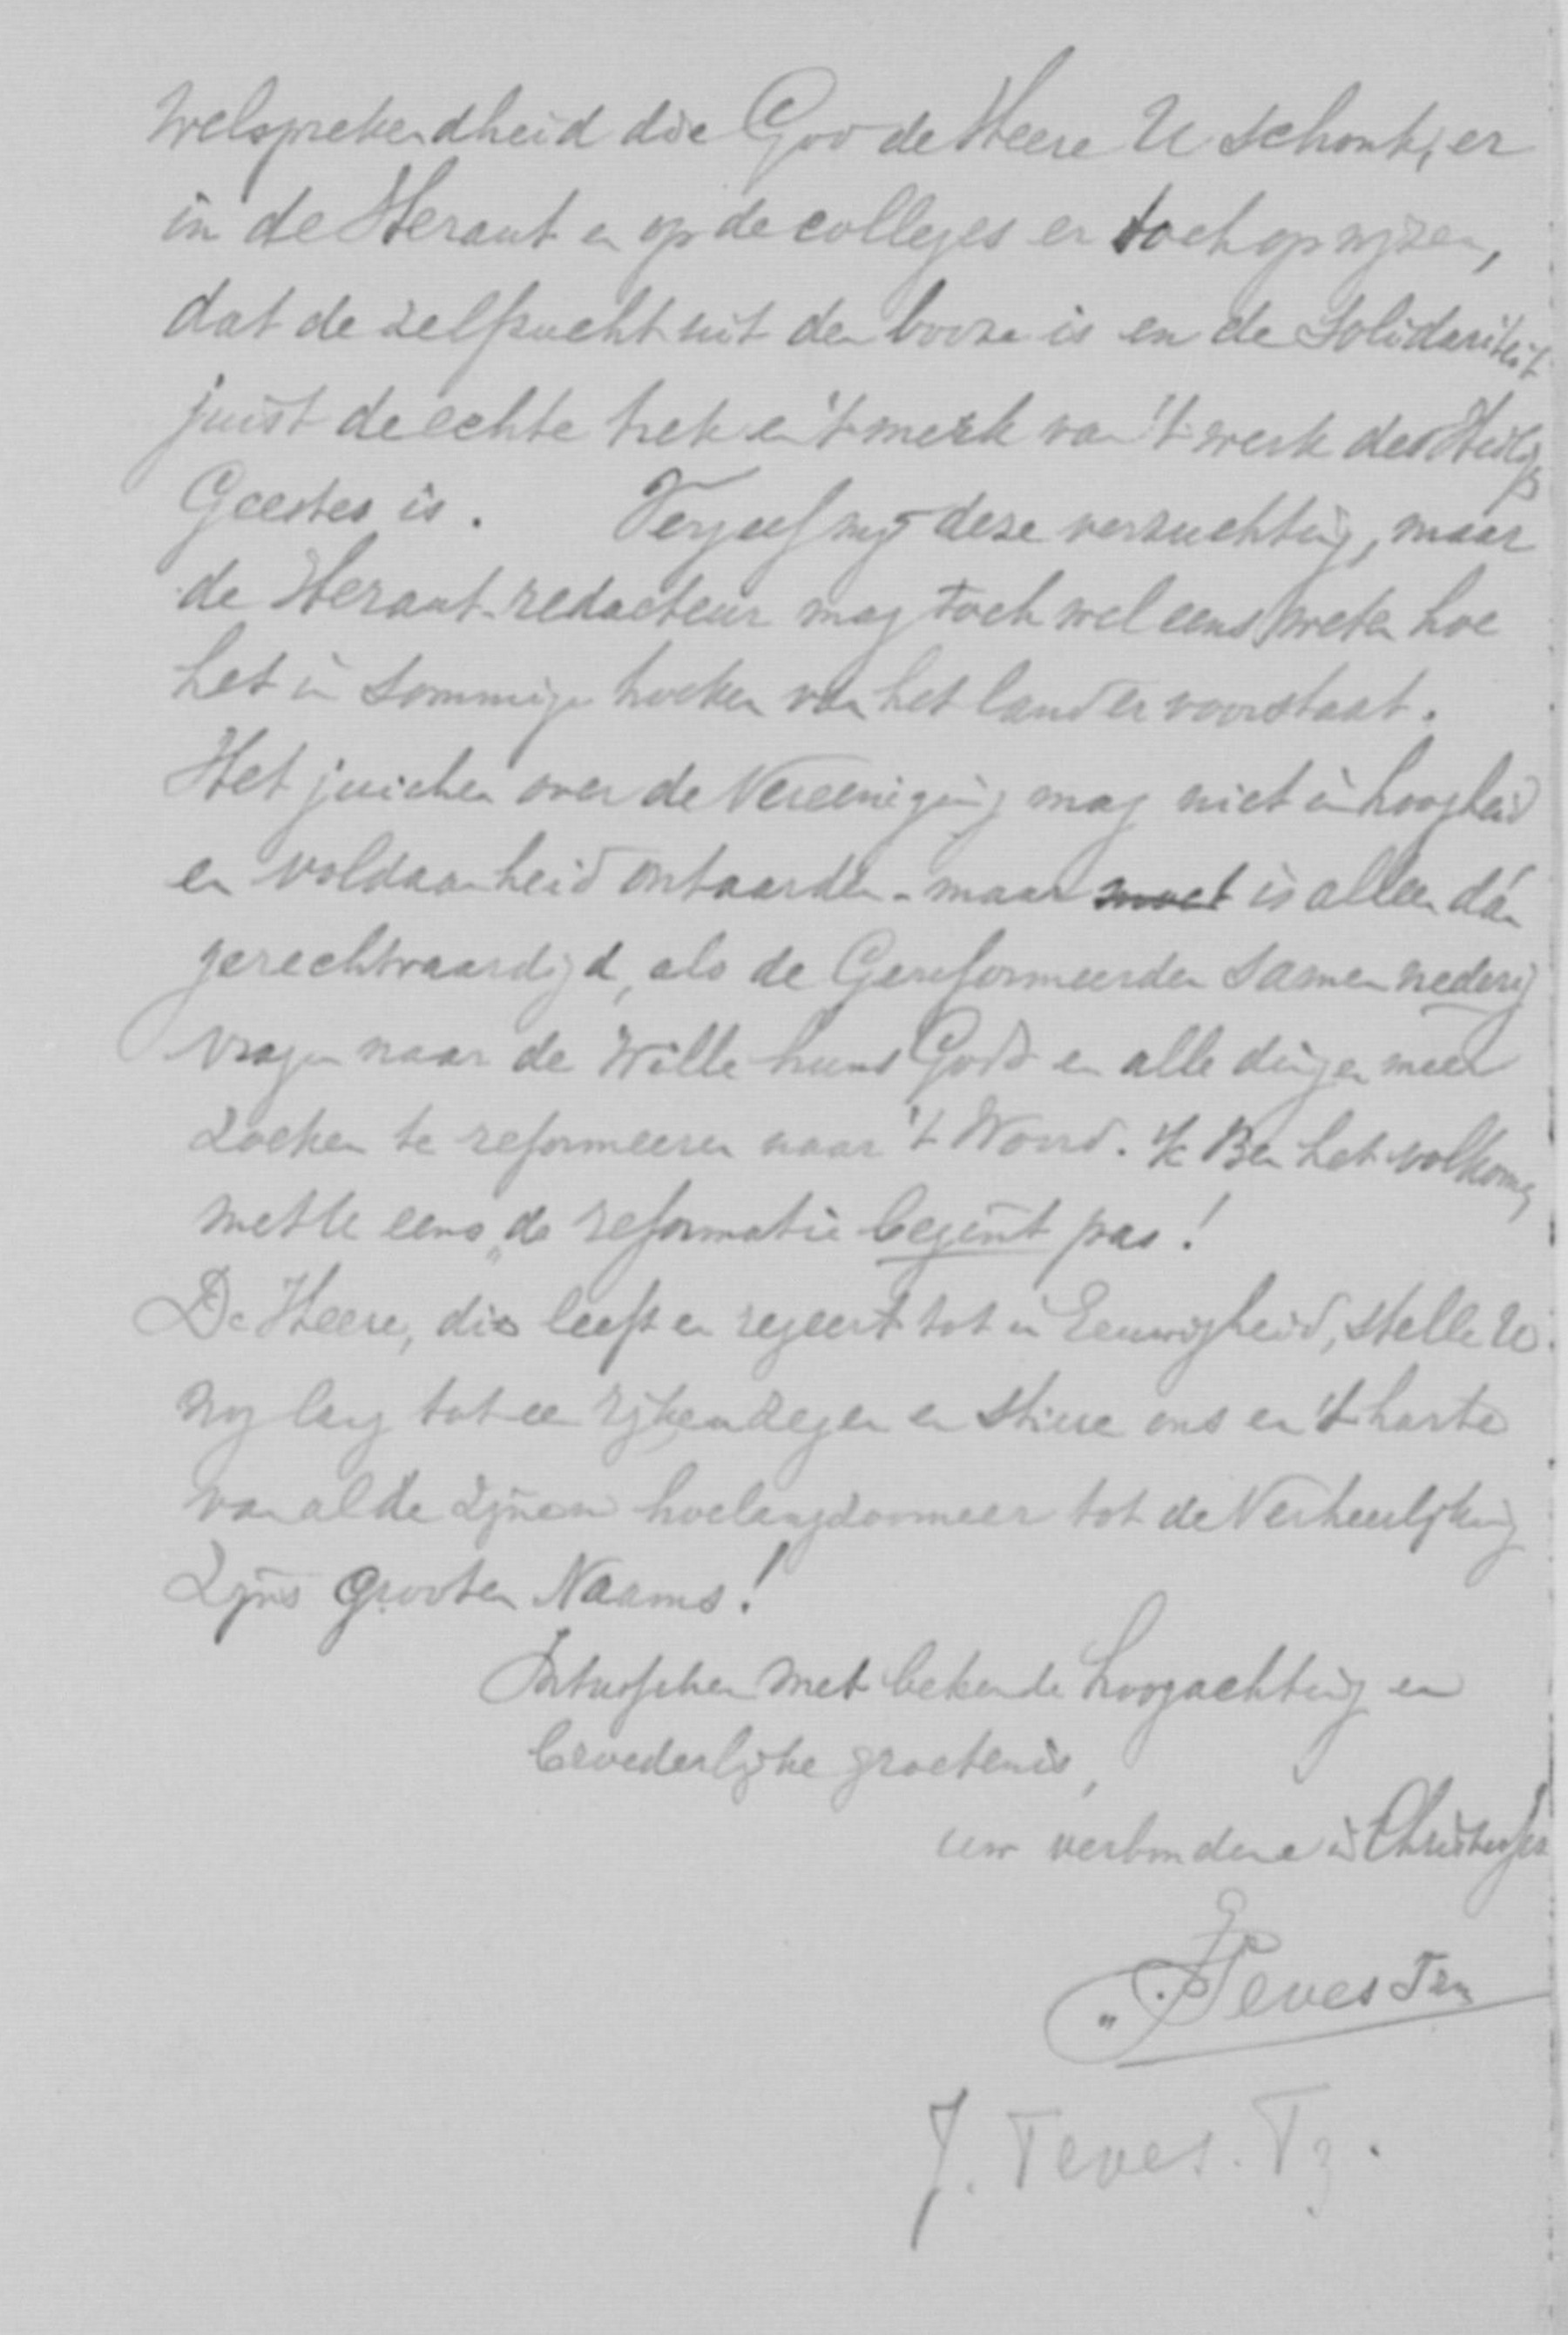 welsprekendheid die God de Heere U schonk, er
in de Heraut en op de colleges er toch op wijzen,
dat de zelfzucht uit den booze is en de Solidariteit
juist de echte trek en 't merk van 't werk des Heiligs
Geestes is. Vergeef mij deze verzuchting, maar
de Heraut-redacteur mag toch wel eens weten hoe
het in sommige hoeken van het land er voorstaat.
Het juichen over de Vereeniging mag niet in hoogheid
en voldaanheid ontaarden - maar moet is alleen dán
gerechtvaardigd, als de Gereformeerden samen nederig
vragen naar de Wille huns Gods en alle dingen meer
zoeken te reformeeren naar 't Woord. 'k Ben het volkomen
met U eens „de reformatie begint pas!
De Heere, die leeft en regeert tot in Eeuwigheid, stelle U
nog lang tot een rijken zegen en stiere ons en 't harte
van al de zijnen hoelangzoomeer tot de Verheerlijking
Zijns grooten Naams!
Intusschen met bekende hoogachting en
broederlijke groetenis,
uw verbondene in Christus
J Teves Tzn
J. Teves. Tz.